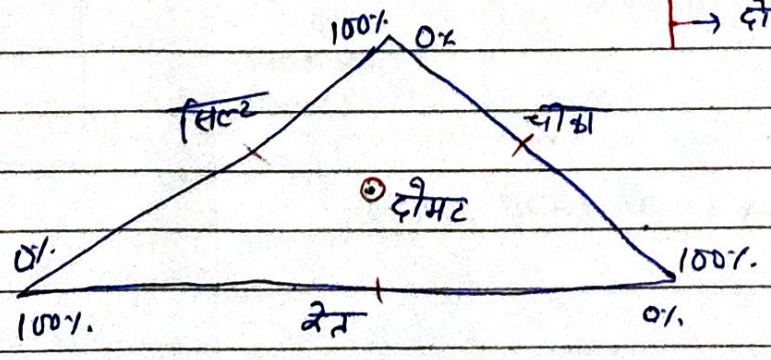 → दो
100% 0%
सिल्ट चीका
दोमट
0% 100%
100% रेत 0%